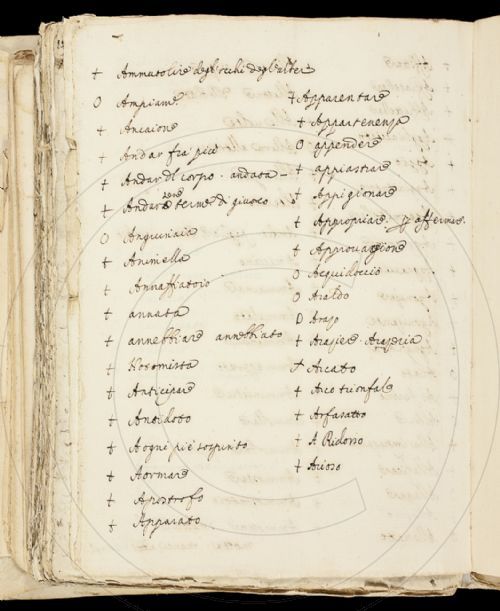 + Ammutolire degl'occhi degl'altri
O Ampiame
+ Ancaione
+ Andar fra piè
+ Andar del corpo. andata -
+ Andare termine di giuoco
O Anguinaia
+ Animella
+ Annaffiatoio
+ annata
+ annebbiare annebbiato
+ Anticipare
+ Antidoto
+ A ogni piè sospinto
+ Aormare
+ Apostrofo
+ Apparato
+ Apparentare
+ Appartenenza
O appendere
+ appiastrare
+ Appigionare
+ Appropriare. p affermare.
+ Approvagione
O Acquidoccio
O Araldo
O Arazo
+ Arcato
+ Arco trionfale
+ Arfasatto
+ A Ridosso
+ Arioso